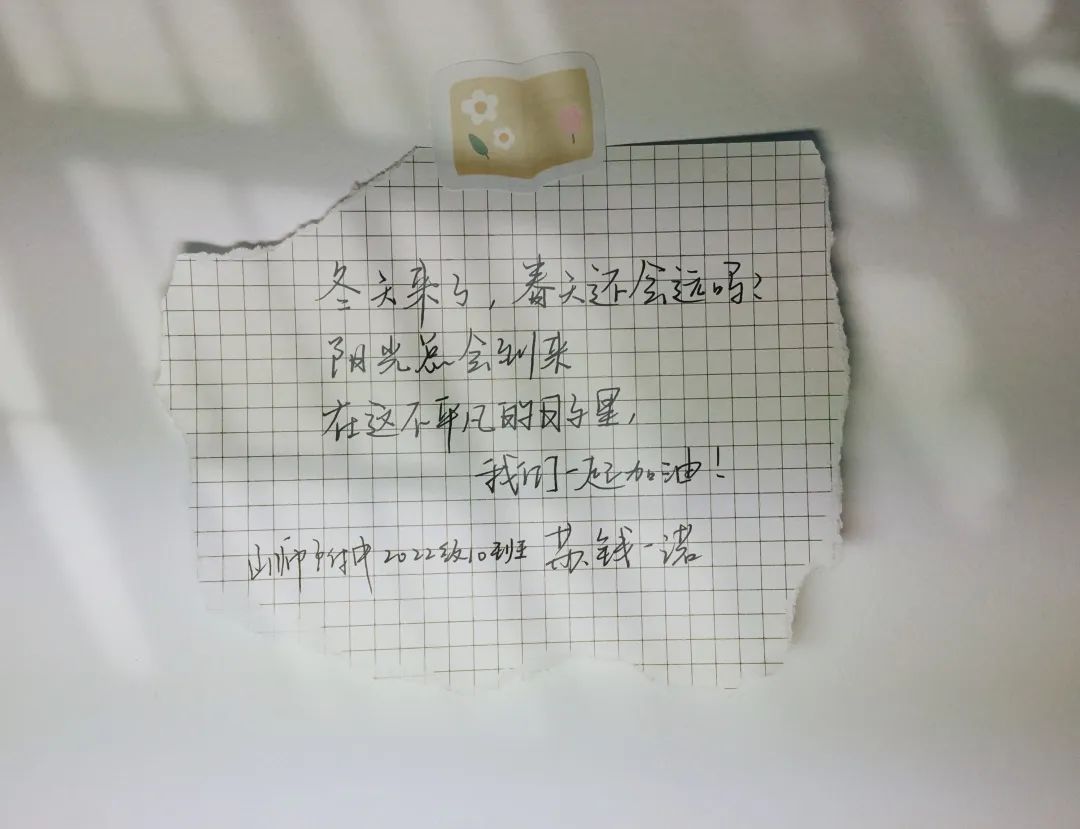 冬天来了，春天还会远吗？
阳光总会到来
在这不平凡的日子里，
我们一起加油！
山师附中2022级10班 苏钱一诺